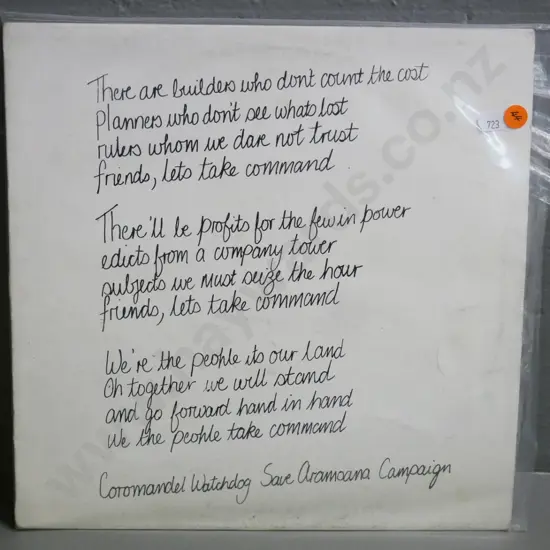 There are builders who don't count the cost
planners who don't see whats lost
rulers whom we dare not trust
friends, lets take command
There'll be profits for the few in power
edicts from a company tower
subjects we must seize the hour
friends, lets take command
We're the people its our land
Oh together we will stand
and go forward hand in hand
We the people take command
Coromandel Watchdog Save Aramoana Campaign
723